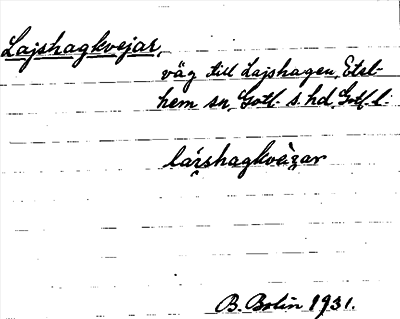 Lajshagkvejar,
väg till Lajshagen, Etel-
hem sn, Gotl. s. hd, Gotl. l.
lárshagkvèi̯ar
B. Bolin 1931.